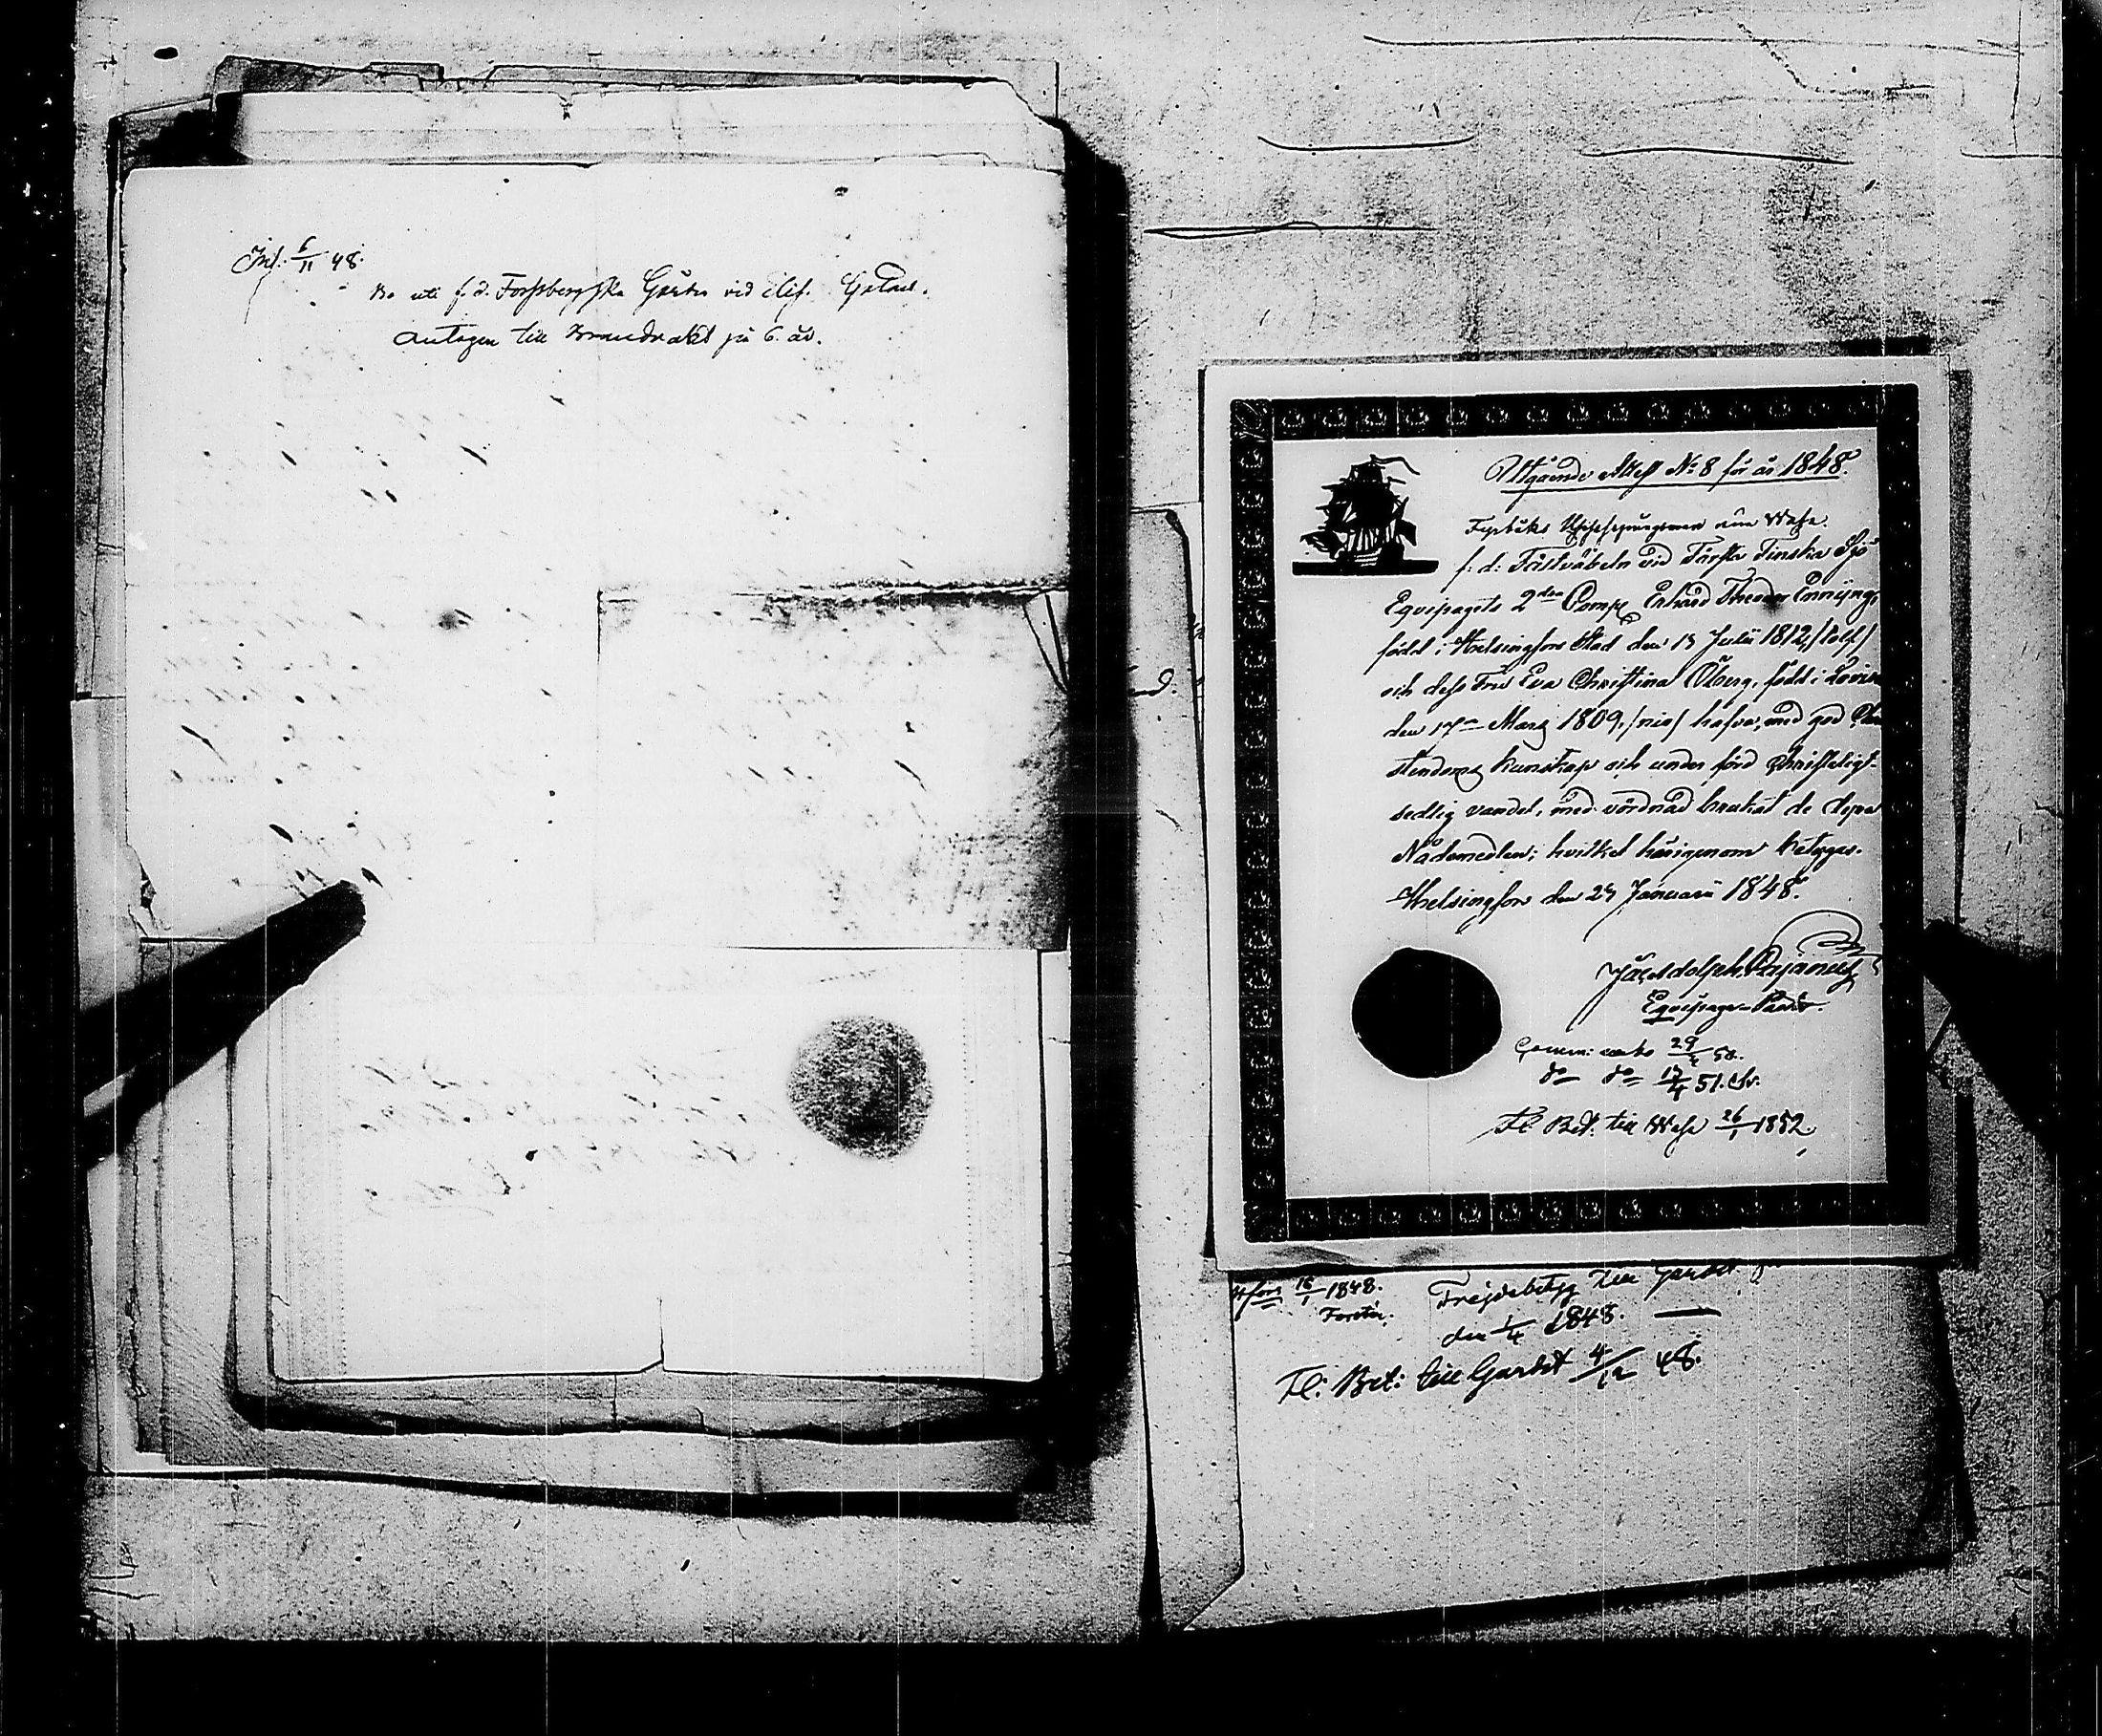 Inl: 6/11 48.
Bo uti f. d. Forssbergska Gården vid Elis. Gatan.
Antagen till Brandvakt på 6 år.
Utgående Attest No 8 för år 1848.
f. d. Fältväbeln vid Första Finska Sjö
Equipagets 2dra Comp. Erhard Theodor
född i Helsingfors Stad den 13 Julii 1812, /tolf/
och dess Fru Eva Christina Öberg, född i Lovisa
den 17de Mars 1809, /nio/ hafva, med god Chri
stendoms kunskap och under förd Christeligt
sedlig vandel, med vördnad brukat de dyra
Nådemedlen; hvilket härigenom betygas.
Helsingfors den 29 Januarii 1848.
Equipage-Pastor.
Comm: 29/ 50.
do do 51.
Fl. Bet: till Wasa 26/1 1852.
Hfors 18/1 1848.
Frejdebetyg till Gardet
den 1/4 1848.
Fl: Bet: till Gardet 4/12 48.